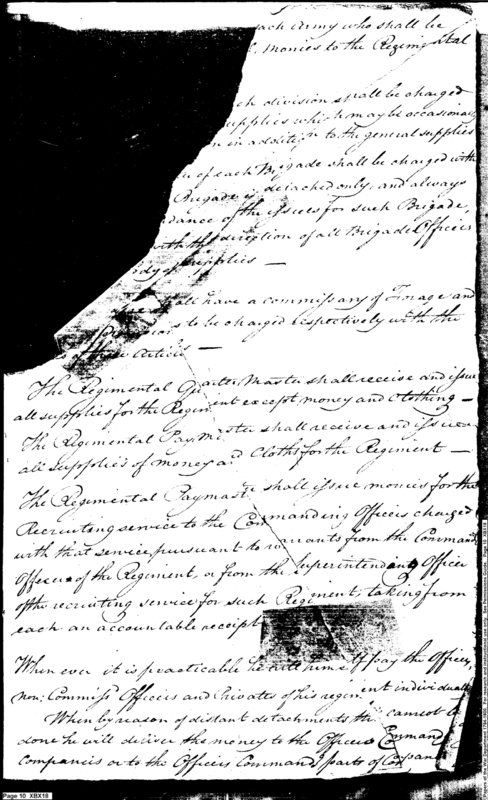 each Army who shall be
monies to the Regimental
ch division shall be charged
upplies which may be occasionally
n in addition to the general supplies
r of each Brigade shall be charged with
Brigade is detached only, and always
dance of the issues for such Brigade,
with the direction of all Brigade Officers
dy of supplies —
shall have a commissary of Forage and
s to be charged respectively with the
of these Articles —
The Regimental Quarter Master shall receive and issue
all supplies for the Regiment except money and Clothing —
The Regimental Paymaster shall receive and issue
all supplies of money and Cloths for the Regiment —
The Regimental Paymaster shall issue monies for the
Recruiting service to the Commanding Officers charged
with that service, pursuant to warrants from the Command
Officer of the Regiment, or from the Superintending Officer
of the recruiting service for such Regiment; taking from
each an accountable receipt
When ever it is practicable he will himself pay the Officers,
non: Commiss.d Officers and Privates of his regiment individually
When by reason of distant detachments this cannot be
done he will deliver the money to the Officers Command
Companies or to the Officers Command.g parts of Companies
Page 10 XBX18